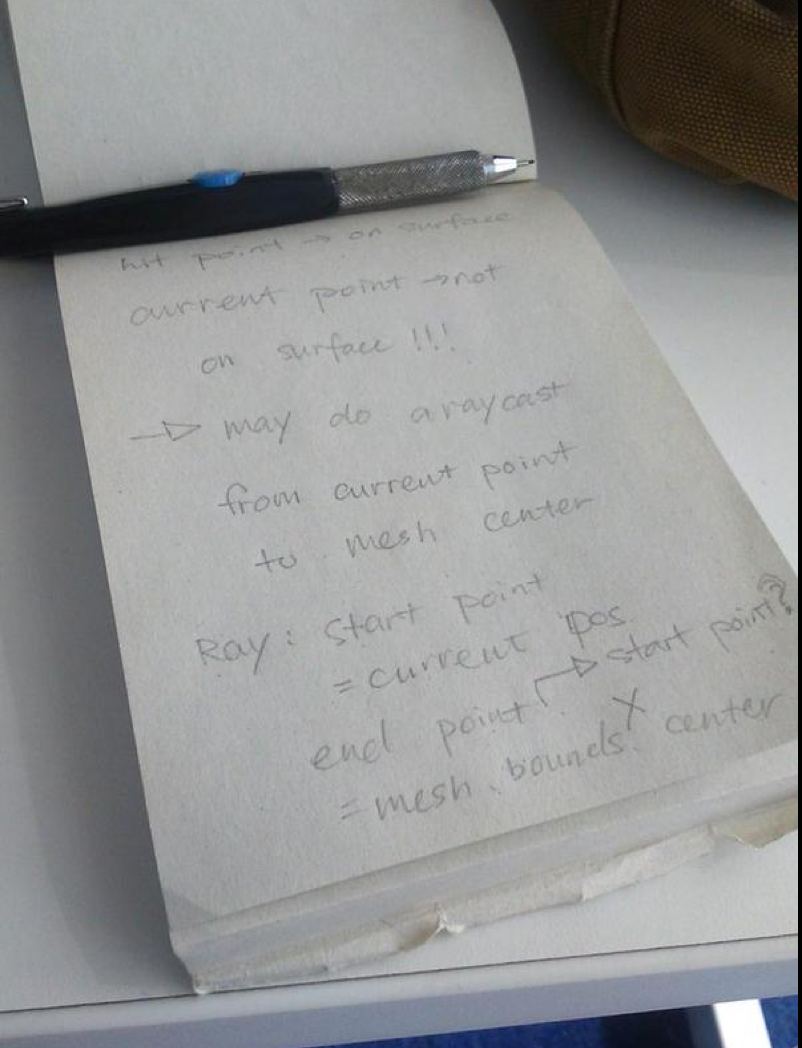 hit point → on surface
current point → not
on surface !!!
→ may do a raycast
from current point
to mesh center
Ray : start point
= current pos
end point → start point?
= mesh . bounds . center